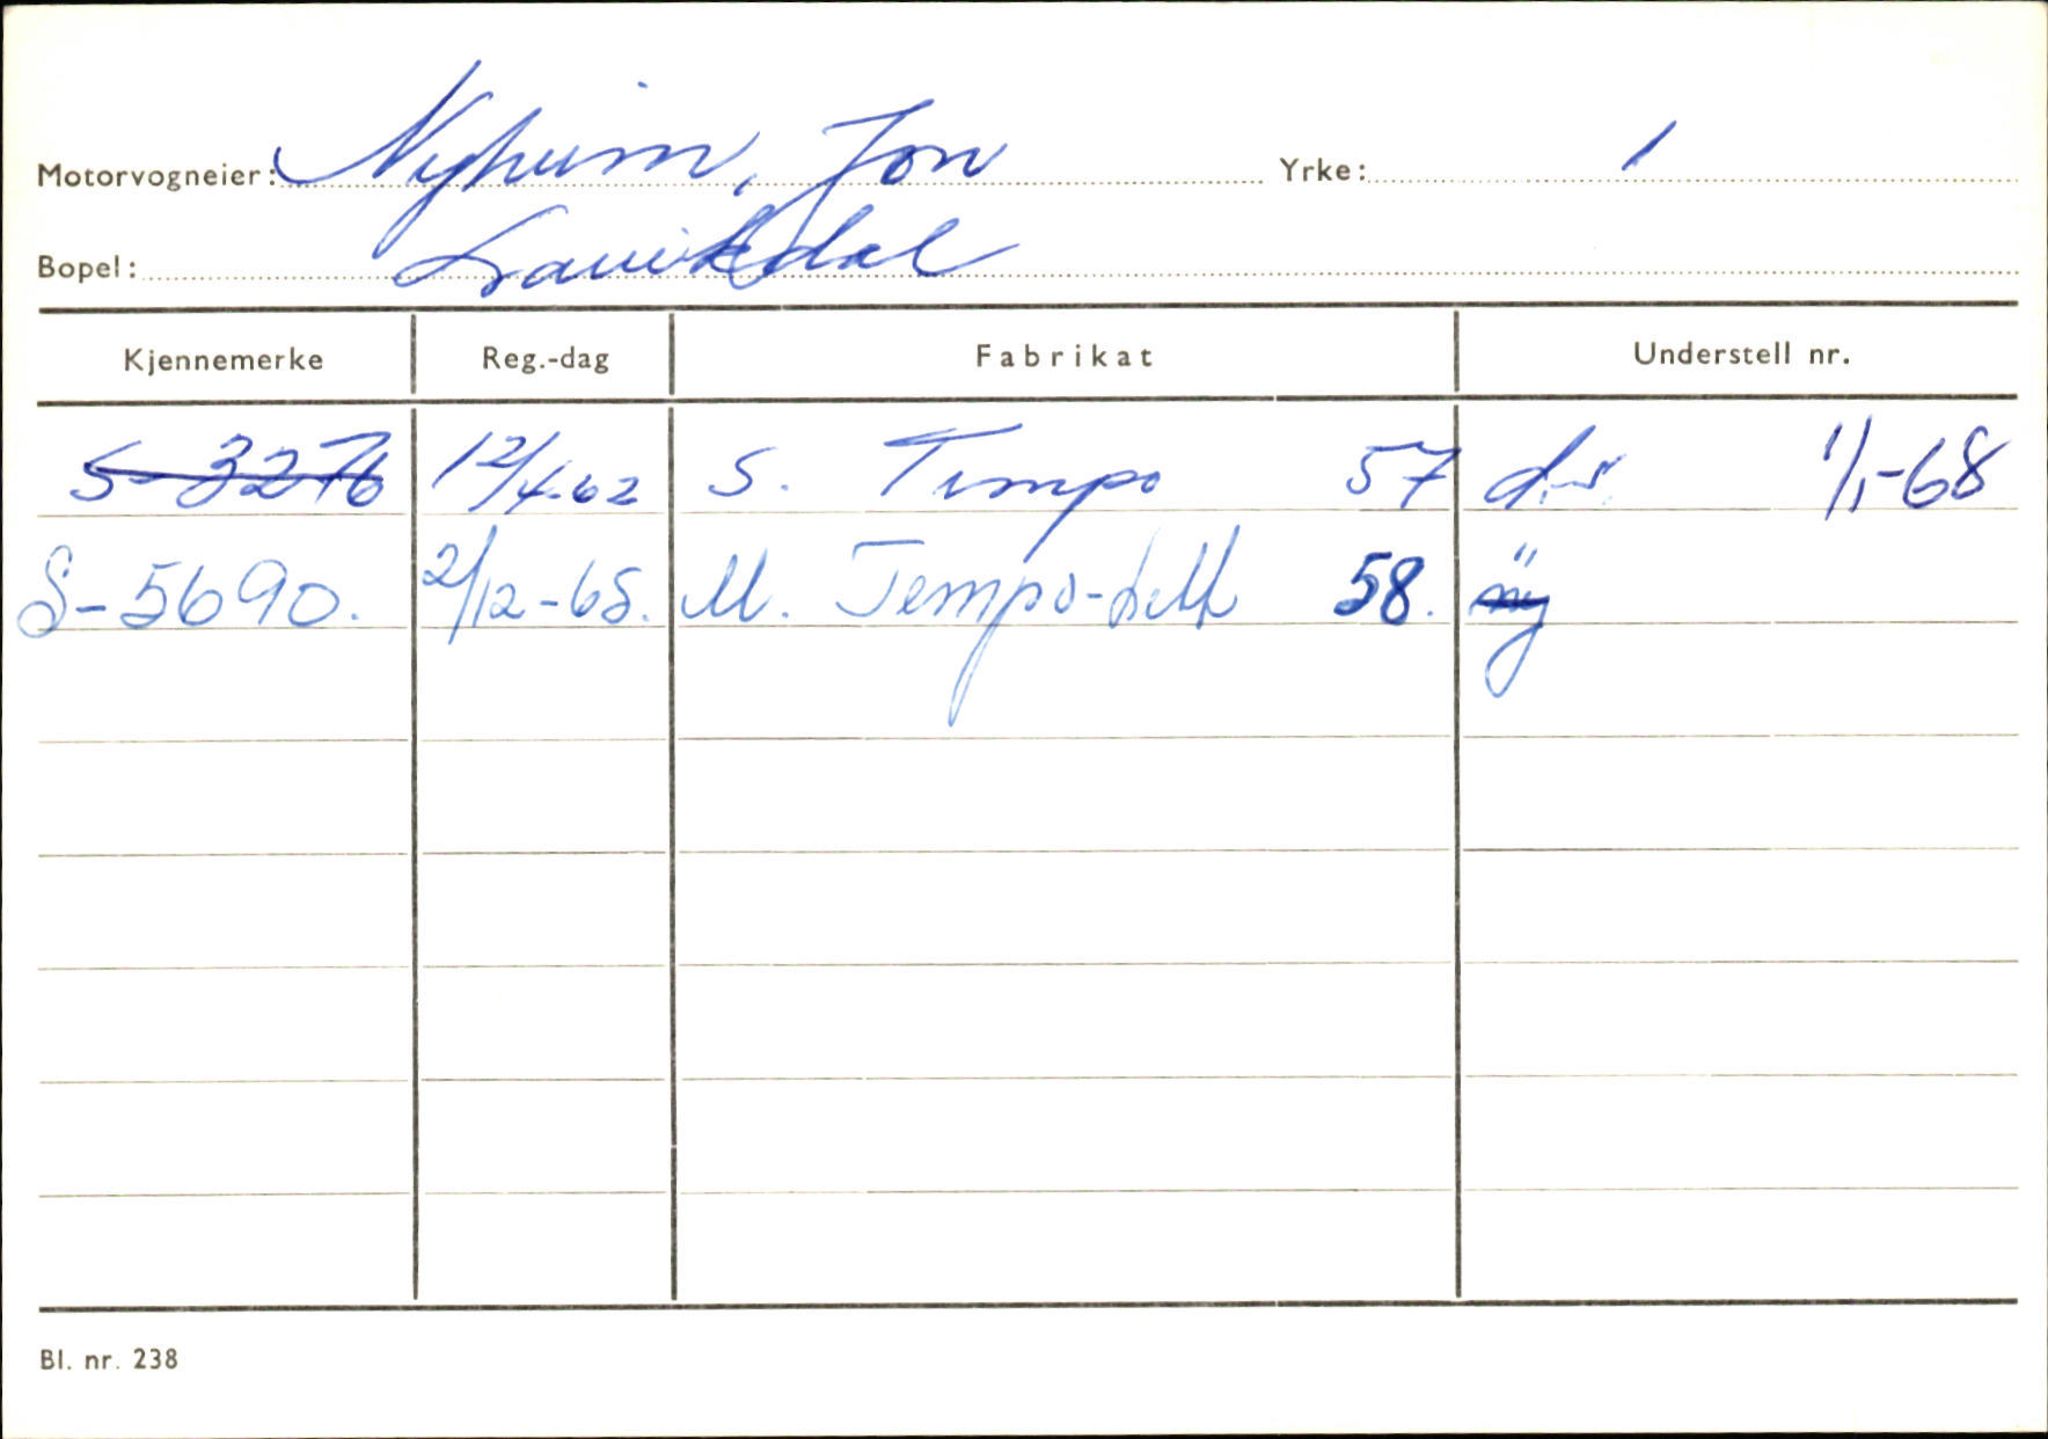 Motorvogneier: Nyheim, Jon Yrke:
Bopel: Lavikdal
Kjennemerke Reg.-dag Fabrikat Understell nr.
S-3276 12/4-62 S. Tempo 57 1/1-68
S-5690. 2/12-65. M. Tempo-Lett 58.
Bl. nr. 238